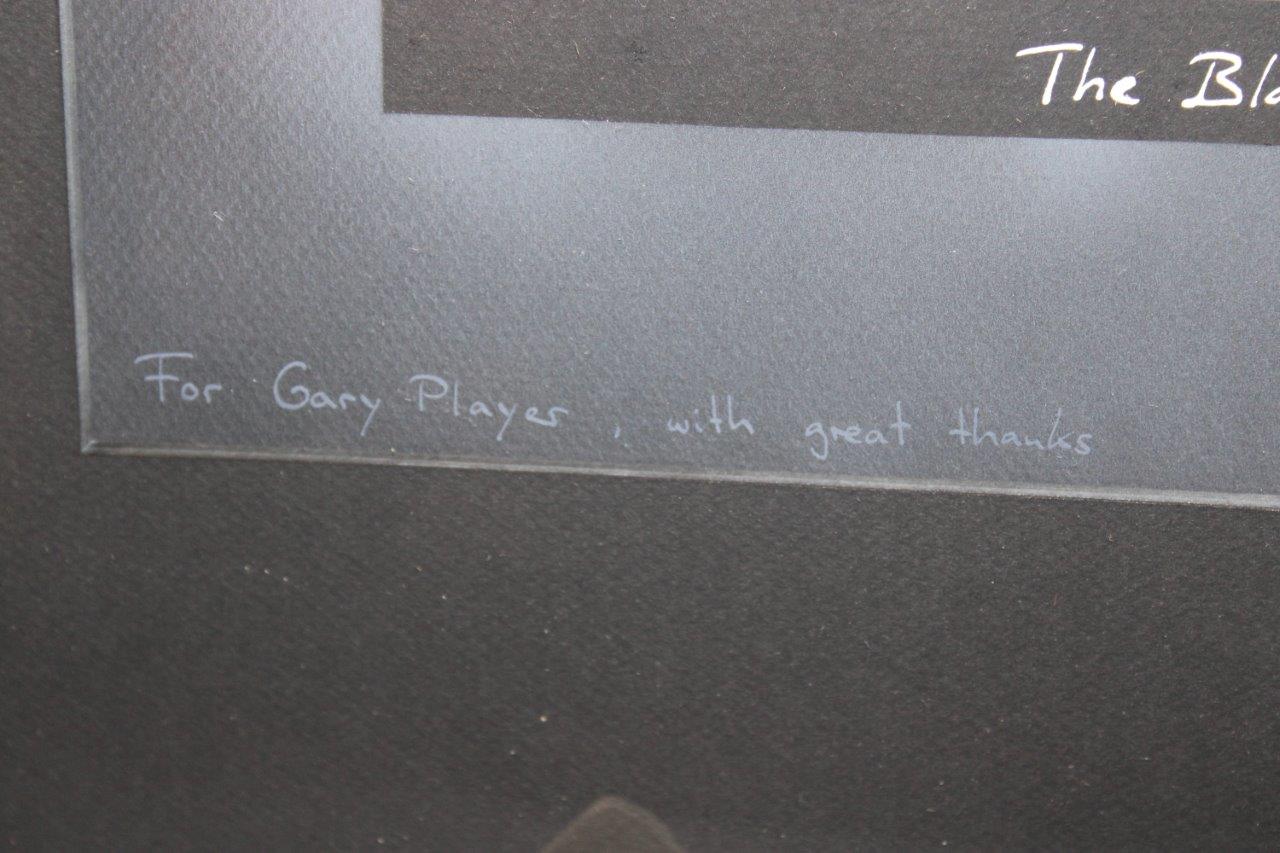 The Bla
For Gary Player, with great thanks